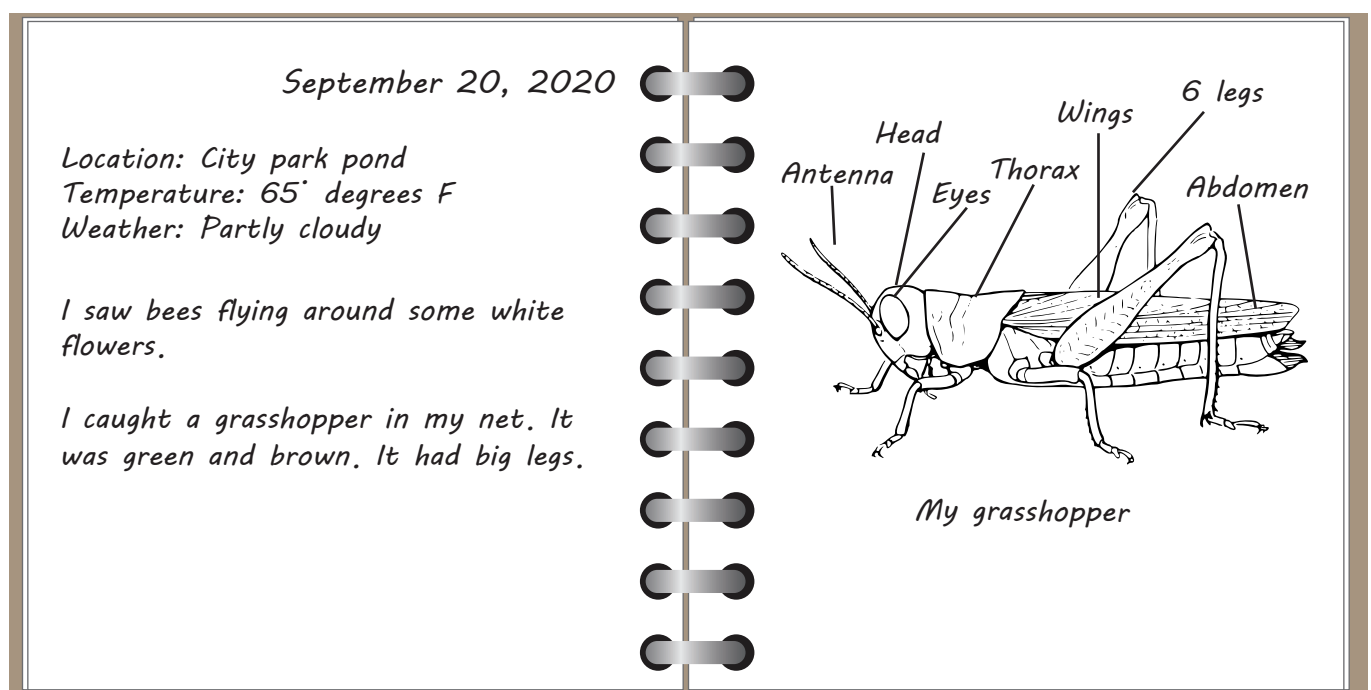 September 20, 2020
Location: City park pond
Temperature: 65° degrees F
Weather: Partly cloudy
I saw bees flying around some white
flowers.
I caught a grasshopper in my net. It
was green and brown. It had big legs.
6 legs
Wings
Head
Thorax
Antenna
Eyes
Abdomen
My grasshopper